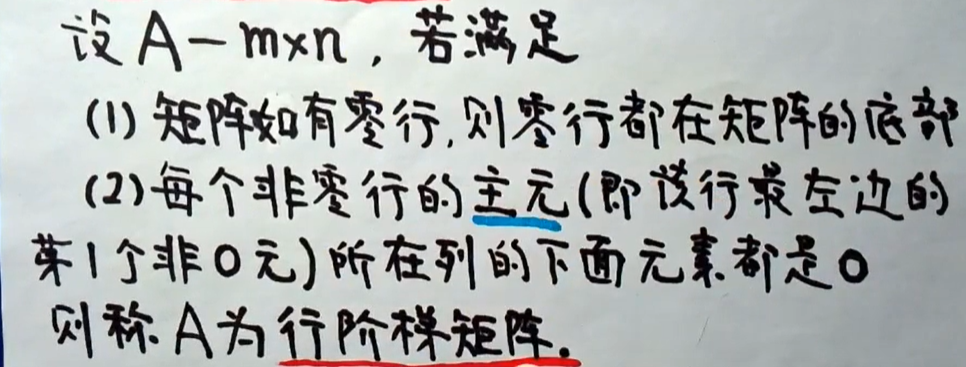 设 A-m×n, 若满足
(1) 矩阵如有零行,则零行都在矩阵的底部
(2) 每个非零行的主元(即该行最左边的
第1个非0元)所在列的下面元素都是0
则称 A为行阶梯矩阵.